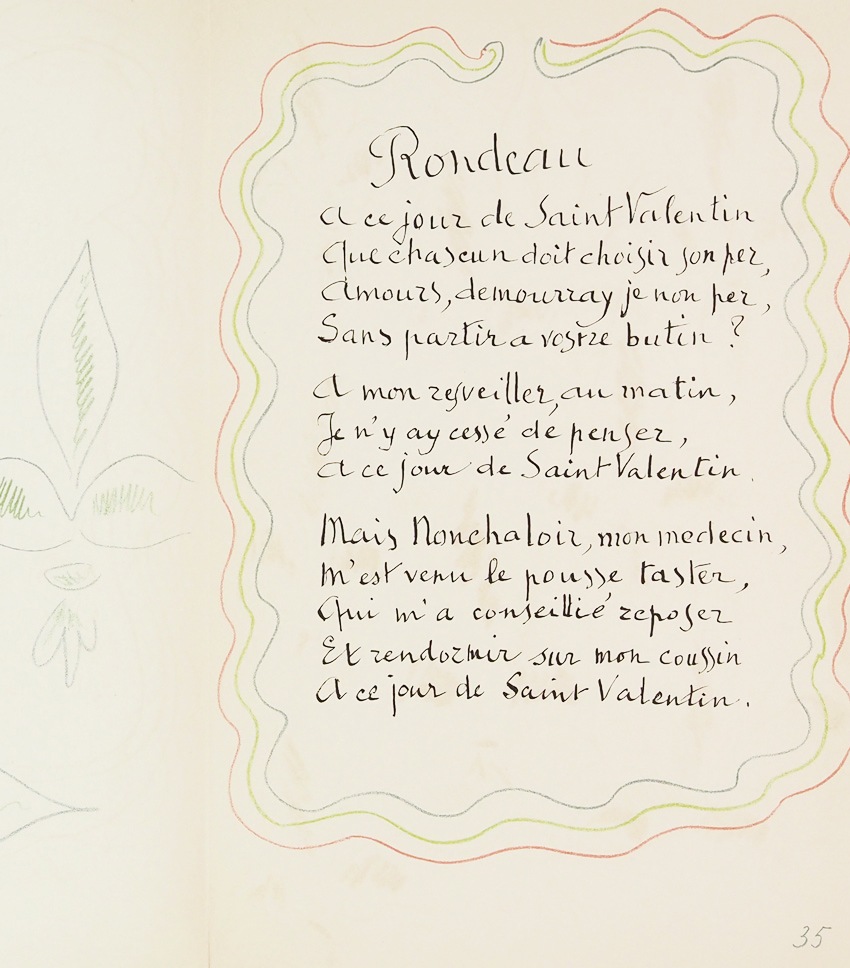 Rondeau
A ce jour de Saint Valentin
Que chascun doit choisir son per,
Amours, demourray je non per,
Sans partir a vostre butin ?
A mon resveiller, au matin,
Je n'y ay cessé de penser,
A ce jour de Saint Valentin.
Mais Nonchaloir, mon medecin,
M'est venu le pousse taster,
Qui m'a conseillié reposer
Et rendormir sur mon coussin
A ce jour de Saint Valentin.
35